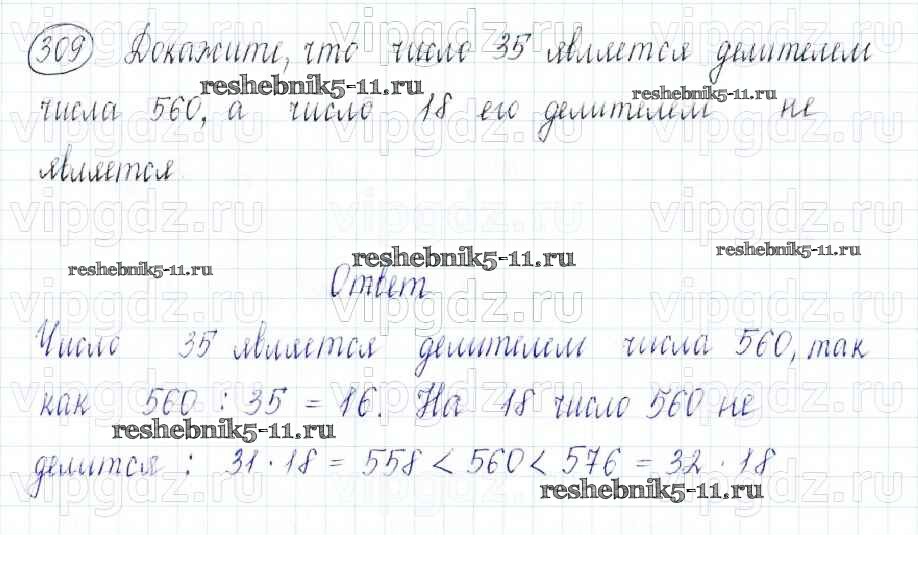 309 Докажите, что число 35 является делителем
reshebnik5-11.ru
reshebnik5-11.ru
числа 560, а число 18 его делителем не
является.
vipgdz.ru vipgdz.ru vipgdz.ru
reshebnik5-11.ru
reshebnik5-11.ru
reshebnik5-11.ru
Ответ
Число 35 является делителем числа 560, так
как 560 : 35 = 16. На 18 число 560 не
reshebnik5-11.ru
делится : 31 · 18 = 558 < 560 < 576 = 32 · 18
reshebnik5-11.ru